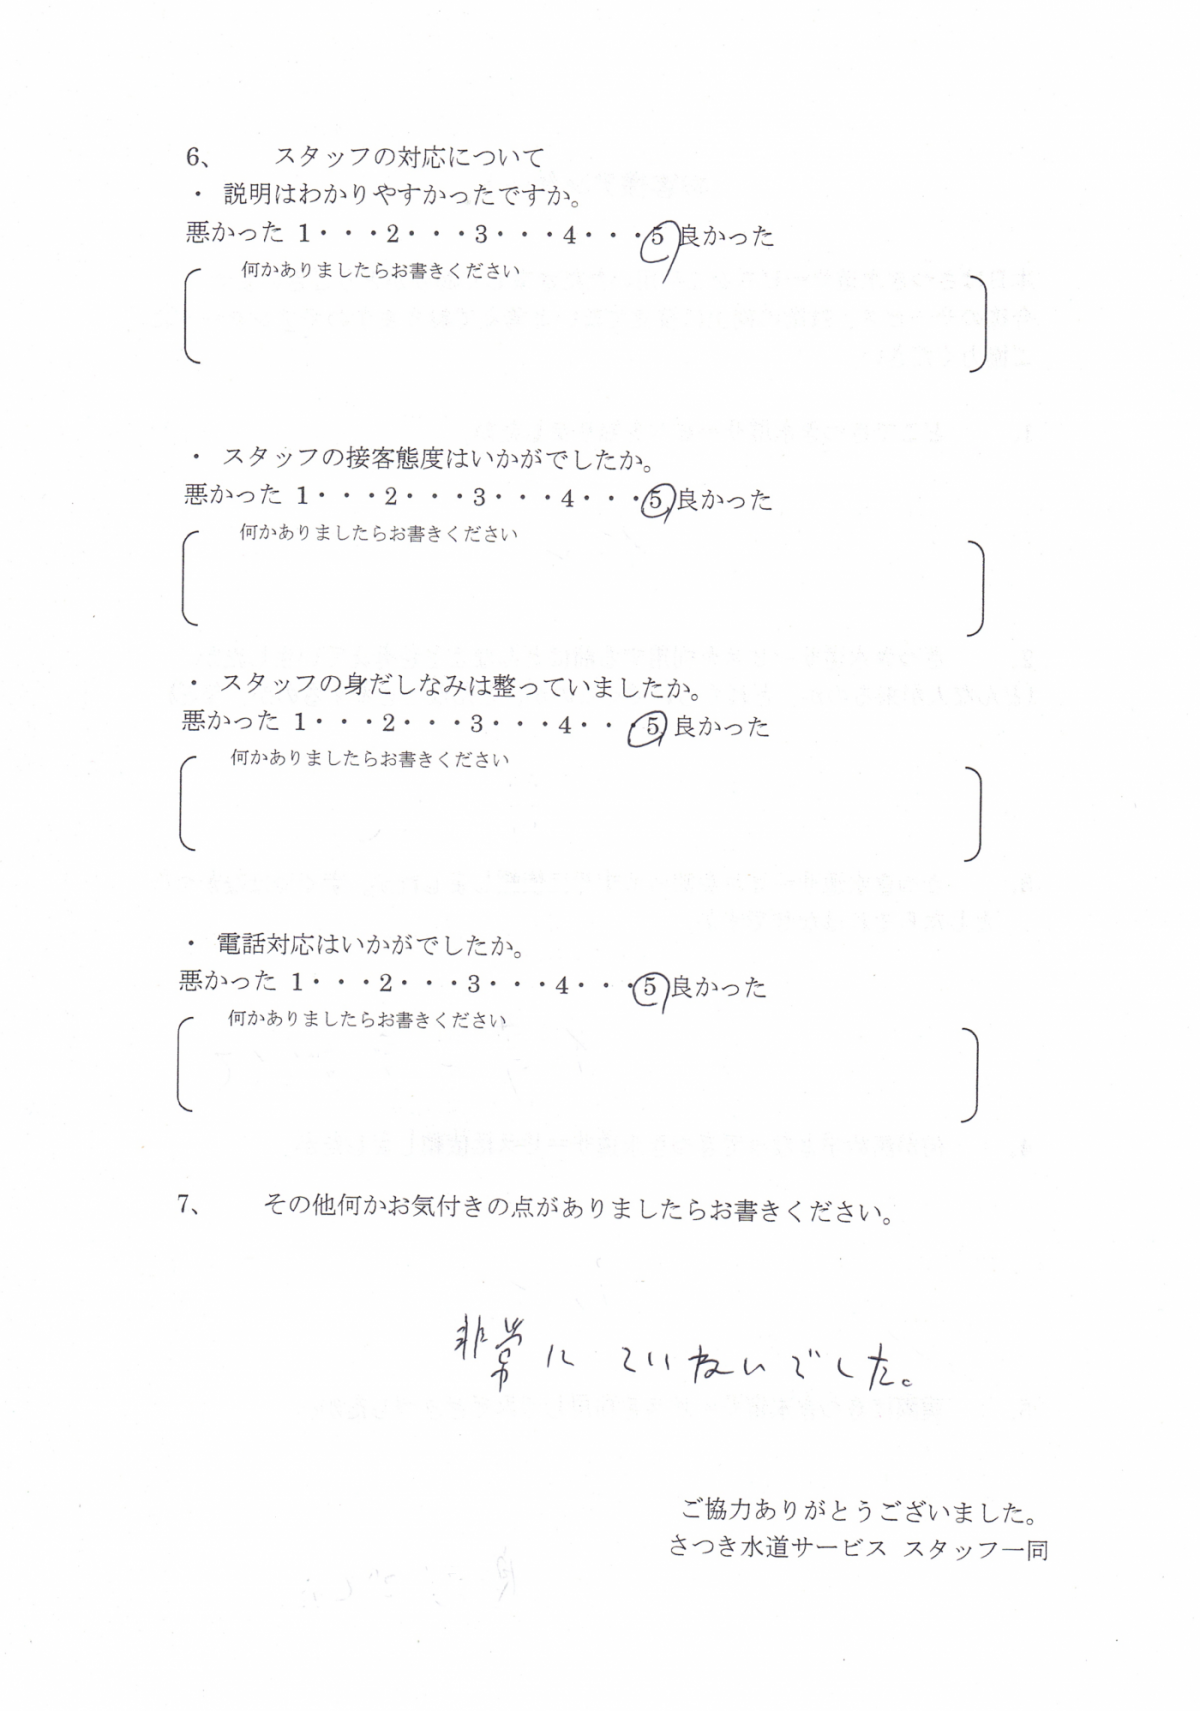 6、　スタッフの対応について
・ 説明はわかりやすかったですか。
悪かった 1・・・2・・・3・・・4・・・5 良かった
何かありましたらお書きください
・ スタッフの接客態度はいかがでしたか。
悪かった 1・・・2・・・3・・・4・・・5 良かった
何かありましたらお書きください
・ スタッフの身だしなみは整っていましたか。
悪かった 1・・・2・・・3・・・4・・・5 良かった
何かありましたらお書きください
・ 電話対応はいかがでしたか。
悪かった 1・・・2・・・3・・・4・・・5 良かった
何かありましたらお書きください
7、　その他何かお気付きの点がありましたらお書きください。
非常に ていねいでした。
ご協力ありがとうございました。
さつき水道サービス スタッフ一同